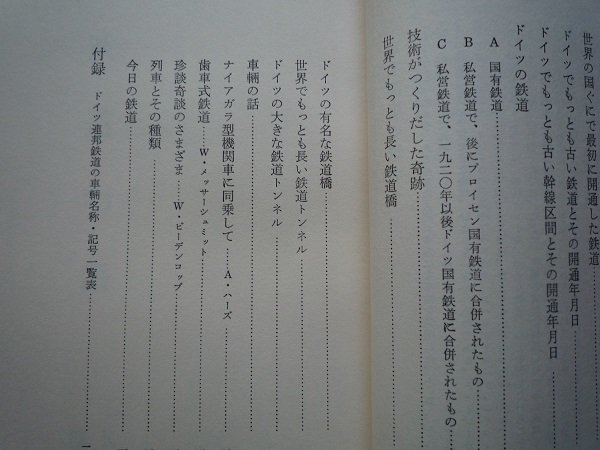 世界の国ぐにで最初に開通した鉄道
ドイツでもっとも古い鉄道とその開通年月日
ドイツでもっとも古い幹線区間とその開通年月日
ドイツの鉄道
A 国有鉄道
B 私営鉄道で、後にプロイセン国有鉄道に合併されたもの
C 私営鉄道で、一九二〇年以後ドイツ国有鉄道に合併されたもの
技術がつくりだした奇跡
世界でもっとも長い鉄道橋
ドイツの有名な鉄道橋
世界でもっとも長い鉄道トンネル
ドイツの大きな鉄道トンネル
車輛の話
ナイアガラ型機関車に同乗して……A・ハーズ
歯車式鉄道……W・メッサーシュミット
珍談奇談のさまざま……W・ビーデンコップ
列車とその種類
今日の鉄道
付録 ドイツ連邦鉄道の車輛名称・記号一覧表